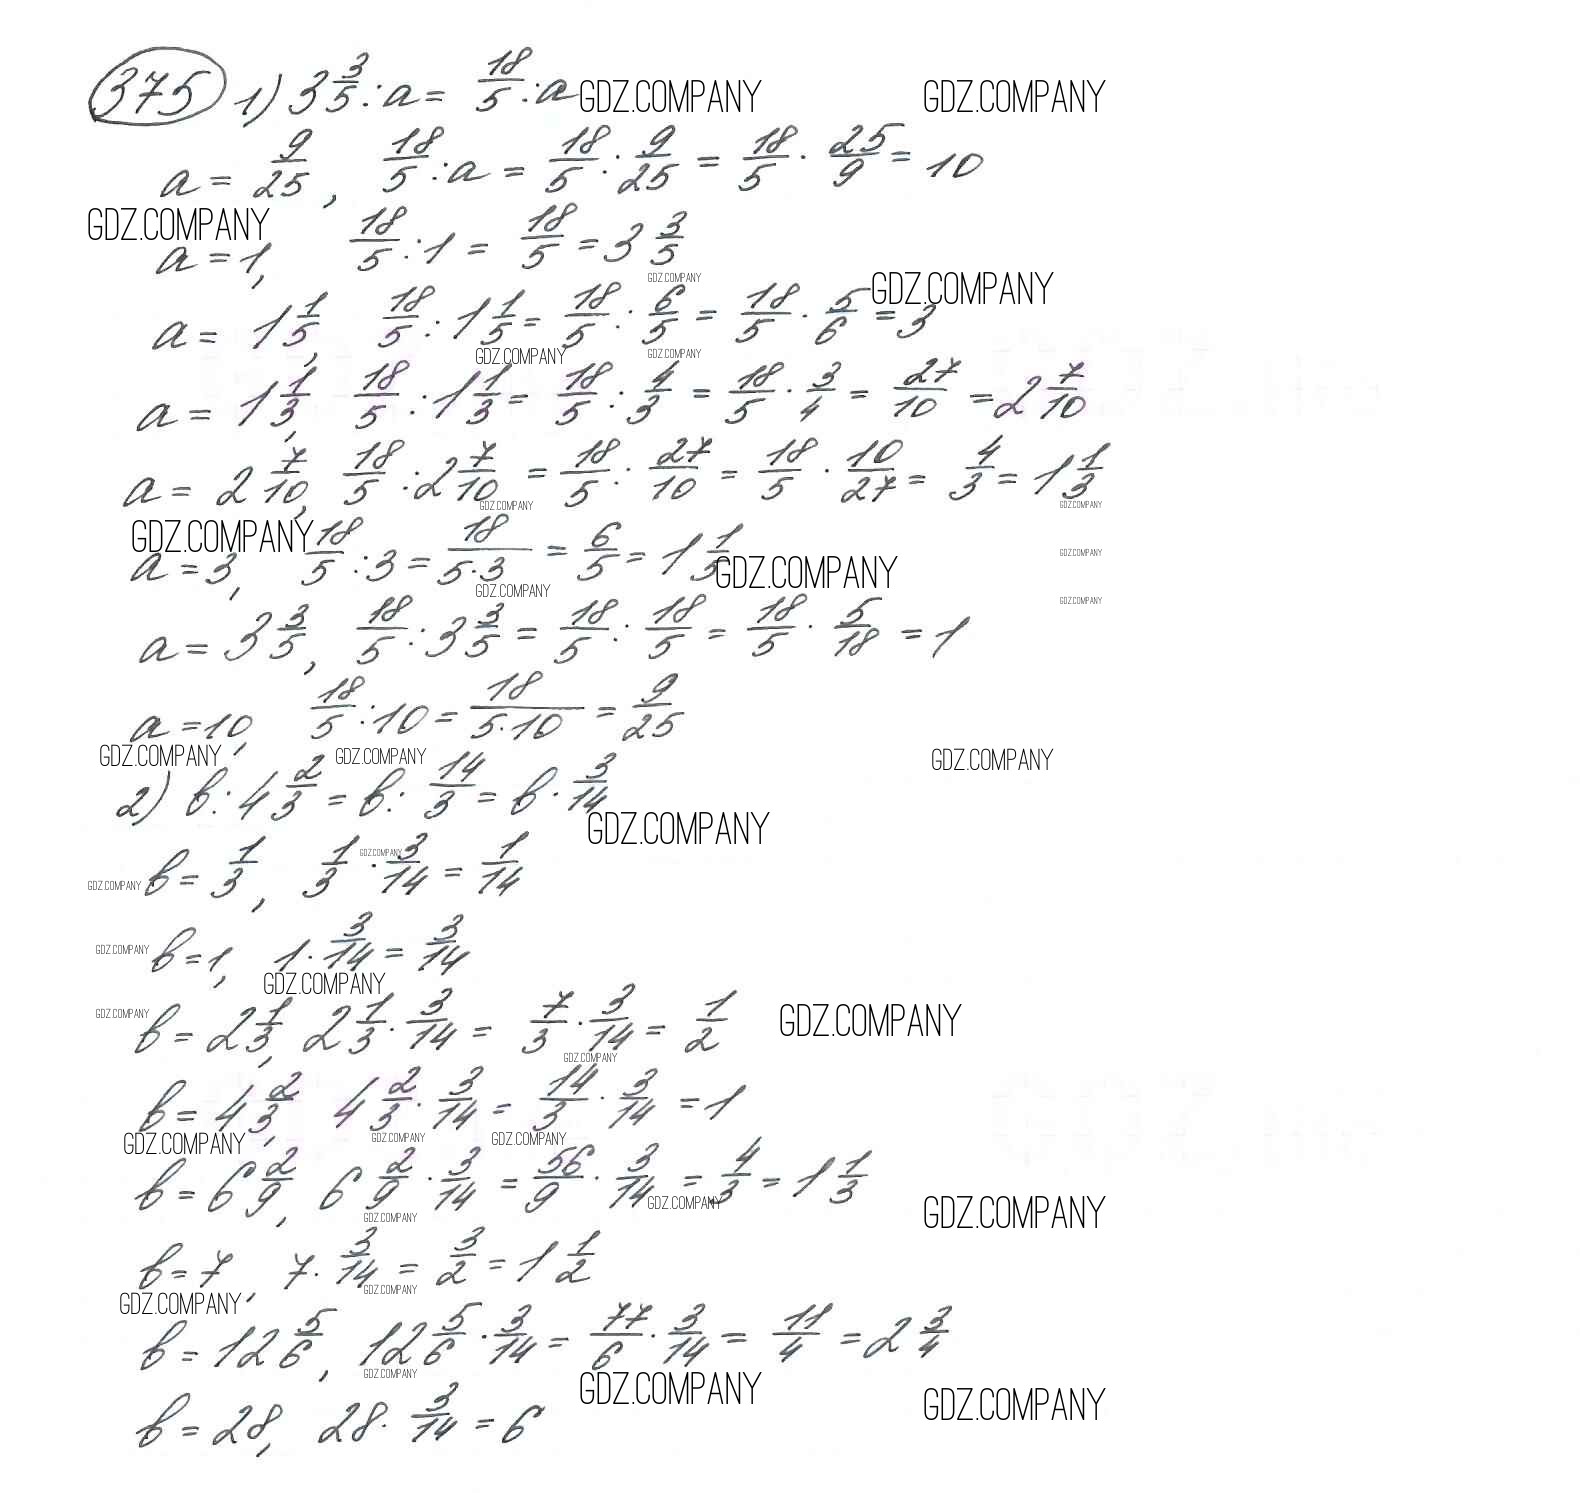 375 1) 3 3/5 : a = 18/5 : a GDZ.COMPANY GDZ.COMPANY
a = 9/25, 18/5 : a = 18/5 : 9/25 = 18/5 · 25/9 = 10
GDZ.COMPANY
a = 1, 18/5 : 1 = 18/5 = 3 3/5
GDZ.COMPANY GDZ.COMPANY
a = 1 1/5, 18/5 : 1 1/5 = 18/5 : 6/5 = 18/5 · 5/6 = 3
GDZ.COMPANY GDZ.COMPANY
a = 1 1/3, 18/5 : 1 1/3 = 18/5 : 4/3 = 18/5 · 3/4 = 27/10 = 2 7/10
a = 2 7/10, 18/5 : 2 7/10 = 18/5 : 27/10 = 18/5 · 10/27 = 4/3 = 1 1/3
GDZ.COMPANY GDZ.COMPANY
GDZ.COMPANY GDZ.COMPANY
a = 3, 18/5 : 3 = 18/(5·3) = 6/5 = 1 1/5 GDZ.COMPANY
GDZ.COMPANY GDZ.COMPANY
a = 3 3/5, 18/5 : 3 3/5 = 18/5 : 18/5 = 18/5 · 5/18 = 1
a = 10, 18/5 : 10 = 18/(5·10) = 9/25
GDZ.COMPANY GDZ.COMPANY GDZ.COMPANY
2) b : 4 2/3 = b : 14/3 = b · 3/14
GDZ.COMPANY
GDZ.COMPANY
GDZ.COMPANY b = 1/3, 1/3 · 3/14 = 1/14
GDZ.COMPANY b = 1, 1 · 3/14 = 3/14
GDZ.COMPANY
GDZ.COMPANY b = 2 1/3, 2 1/3 · 3/14 = 7/3 · 3/14 = 1/2 GDZ.COMPANY
GDZ.COMPANY
b = 4 2/3, 4 2/3 · 3/14 = 14/3 · 3/14 = 1
GDZ.COMPANY GDZ.COMPANY GDZ.COMPANY
b = 6 2/9, 6 2/9 · 3/14 = 56/9 · 3/14 = 4/3 = 1 1/3
GDZ.COMPANY GDZ.COMPANY
GDZ.COMPANY
b = 7, 7 · 3/14 = 3/2 = 1 1/2
GDZ.COMPANY GDZ.COMPANY
b = 12 5/6, 12 5/6 · 3/14 = 77/6 · 3/14 = 11/4 = 2 3/4
GDZ.COMPANY GDZ.COMPANY GDZ.COMPANY
b = 28, 28 · 3/14 = 6